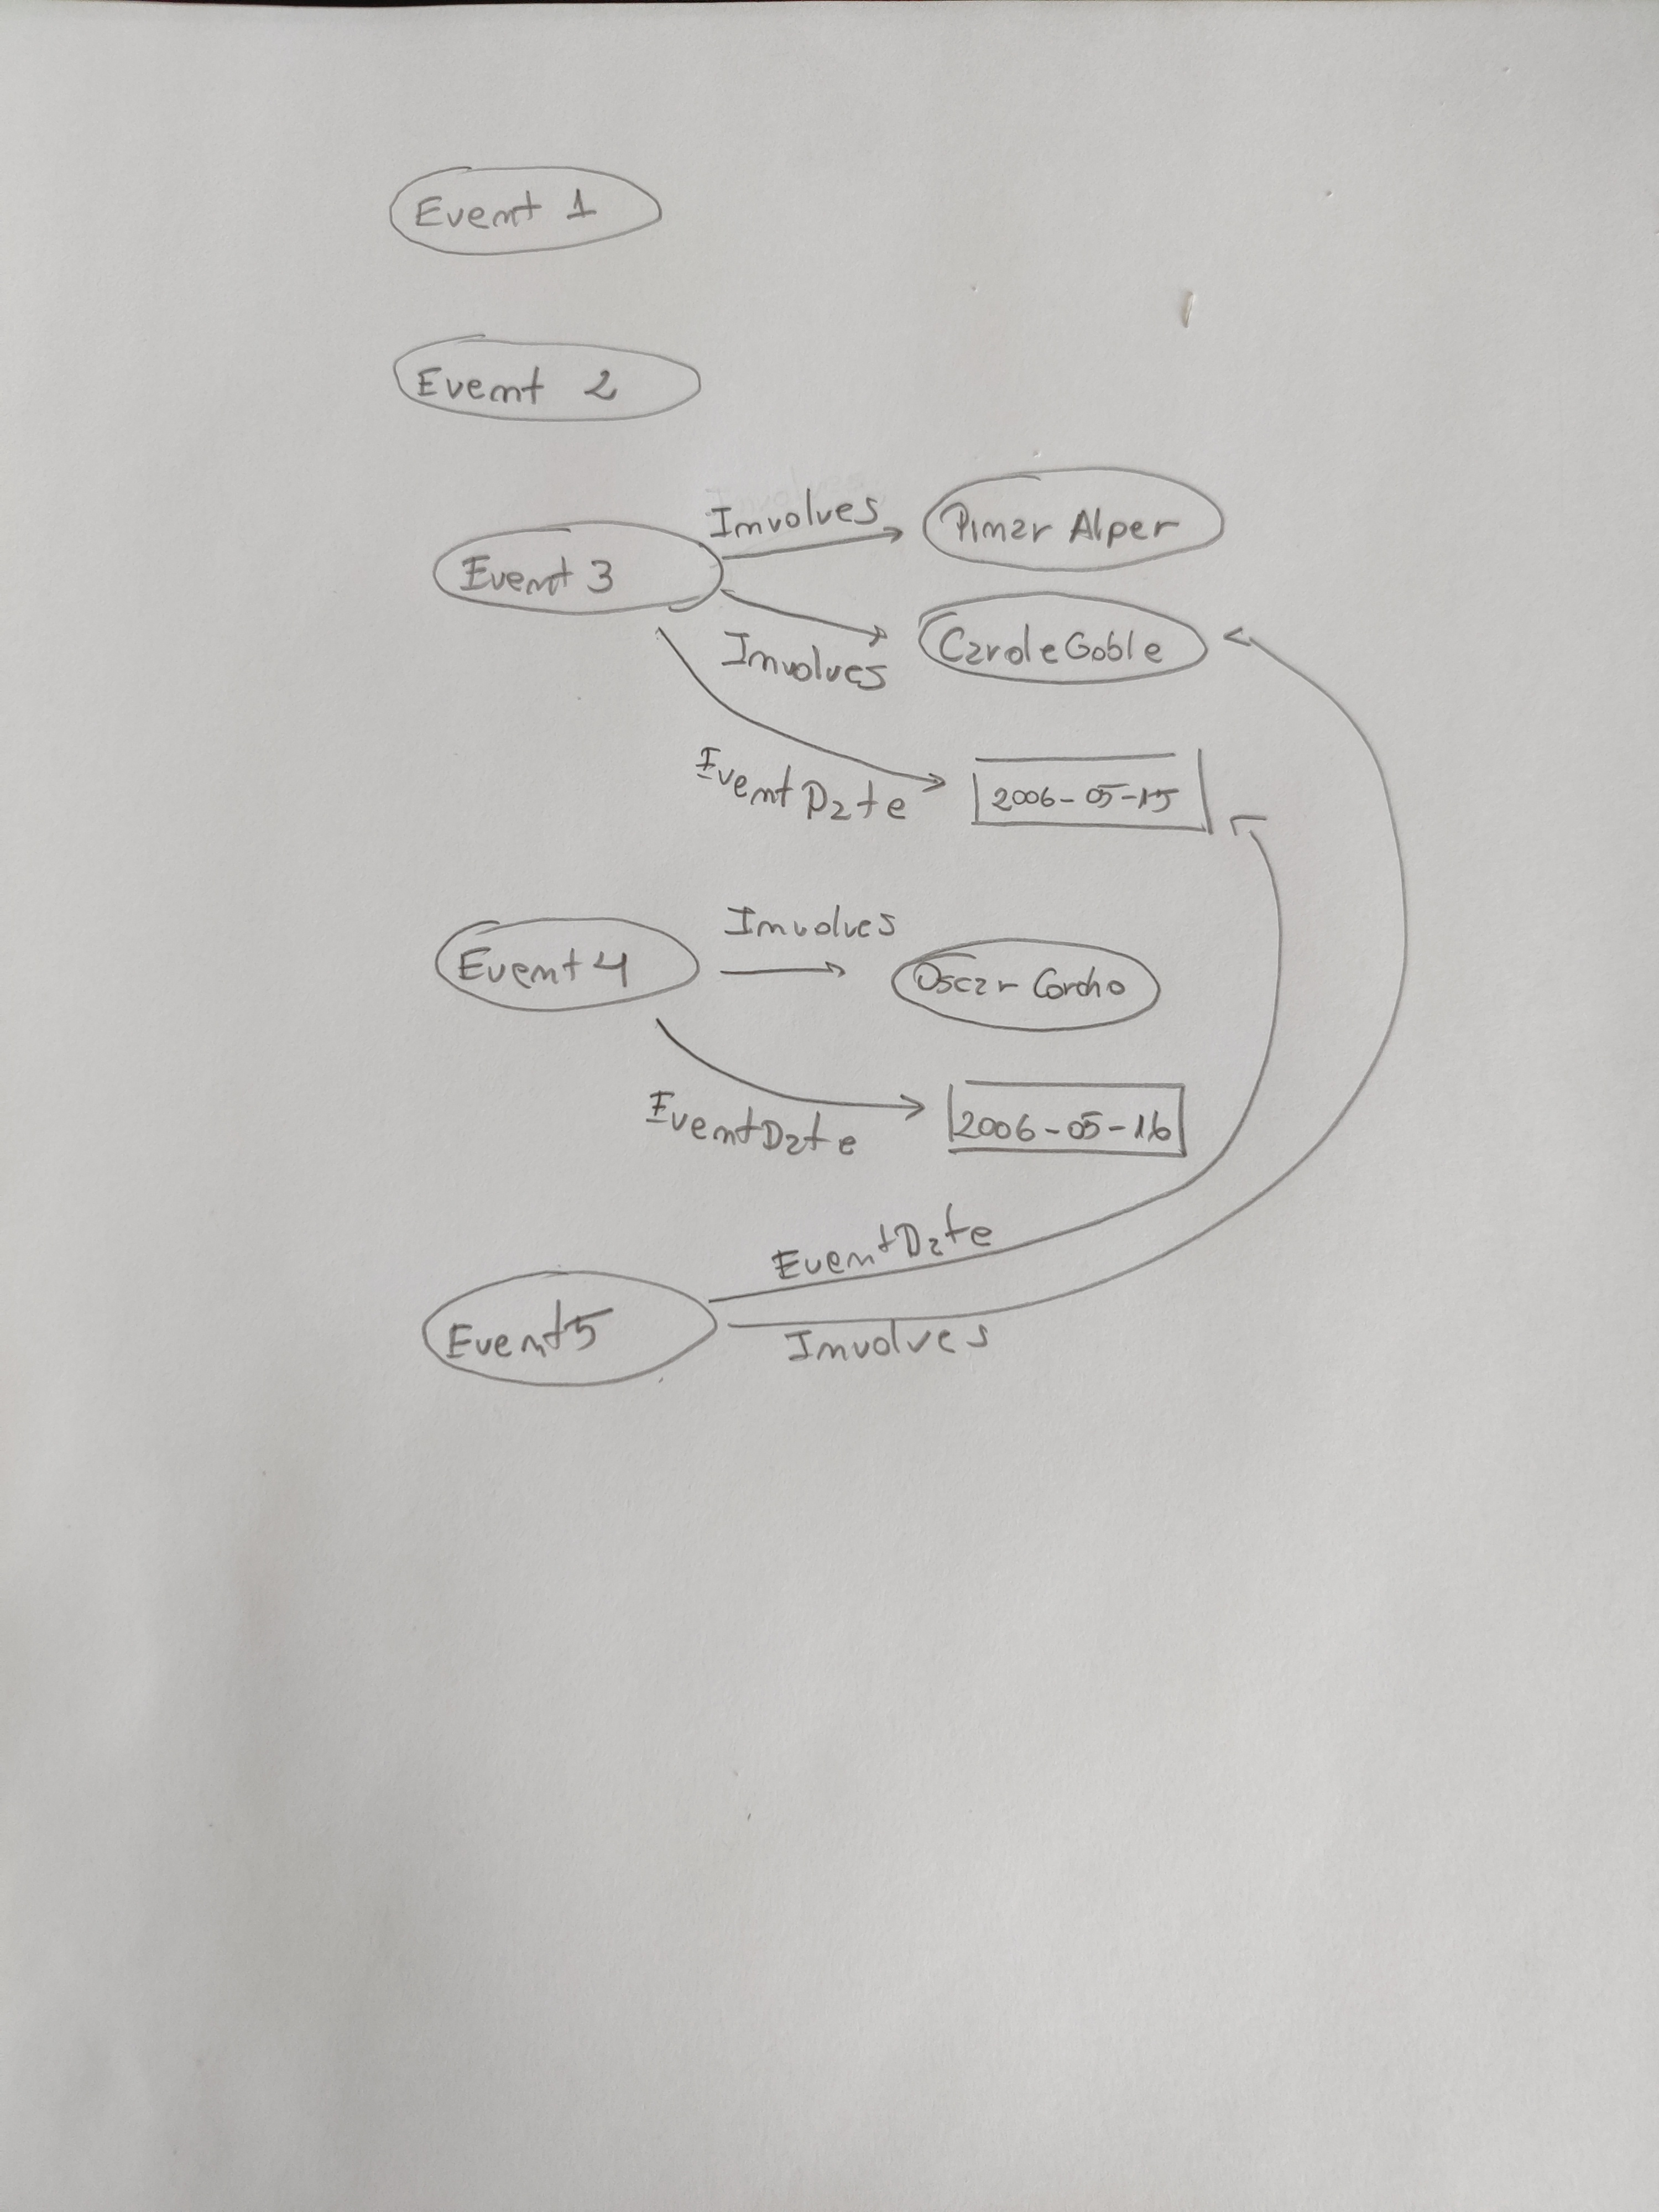 Event 1
Event 2
Involves
Pinar Alper
Event 3
Involves
Carole Goble
EventDate
2006-05-15
Involves
Event 4
Oscar Corcho
EventDate
2006-05-16
EventDate
Event 5
Involves